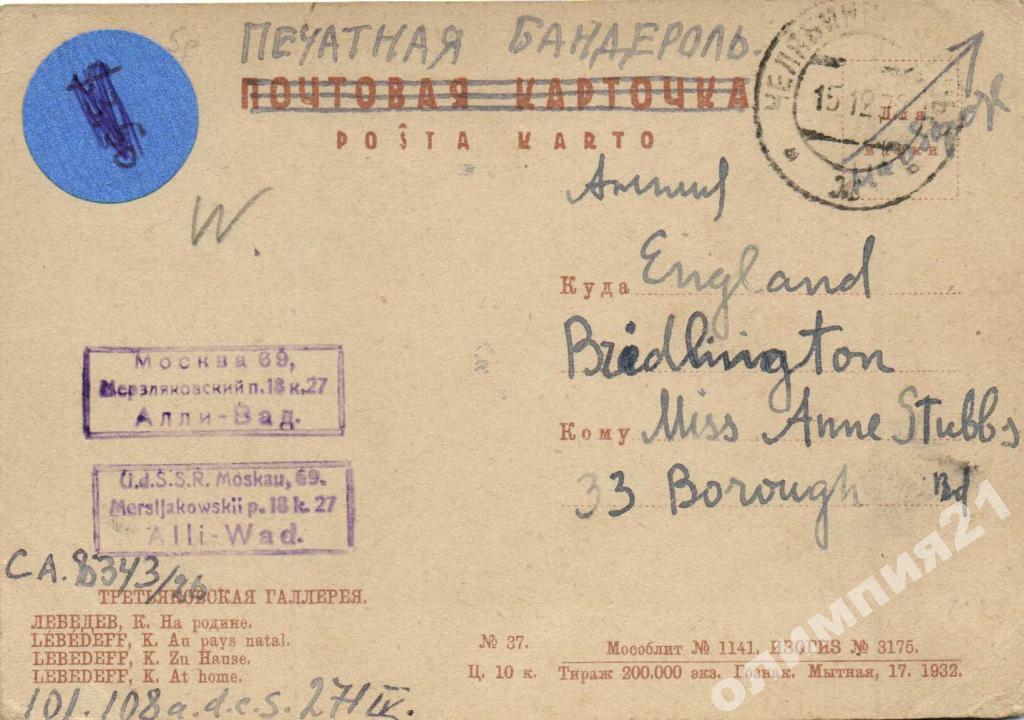 ПЕЧАТНАЯ БАНДЕРОЛЬ.
ПОЧТОВАЯ КАРТОЧКА
POŜTA KARTO
15 12
Для
марки
на обороте
W.
Куда England
Bridlington
Кому Miss Anne Stubbs
33 Borough Rd
Москва 69,
Мерзляковский п. 18 к. 27
Алли-Вад.
U.d.S.S.R. Moskau, 69.
Mersljakowskii p. 18 k. 27
Alli-Wad.
CA. 8343/26
ТРЕТЬЯКОВСКАЯ ГАЛЛЕРЕЯ.
ЛЕБЕДЕВ, К. На родине.
LEBEDEFF, K. Au pays natal.
LEBEDEFF, K. Zu Hause.
LEBEDEFF, K. At home.
№ 37.
Ц. 10 к.
Мособлит № 1141. ИЗОГИЗ № 3175.
Тираж 200.000 экз. Гознак. Мытная, 17. 1932.
101.108a.d.c.s. 271 IV.
олимпия21